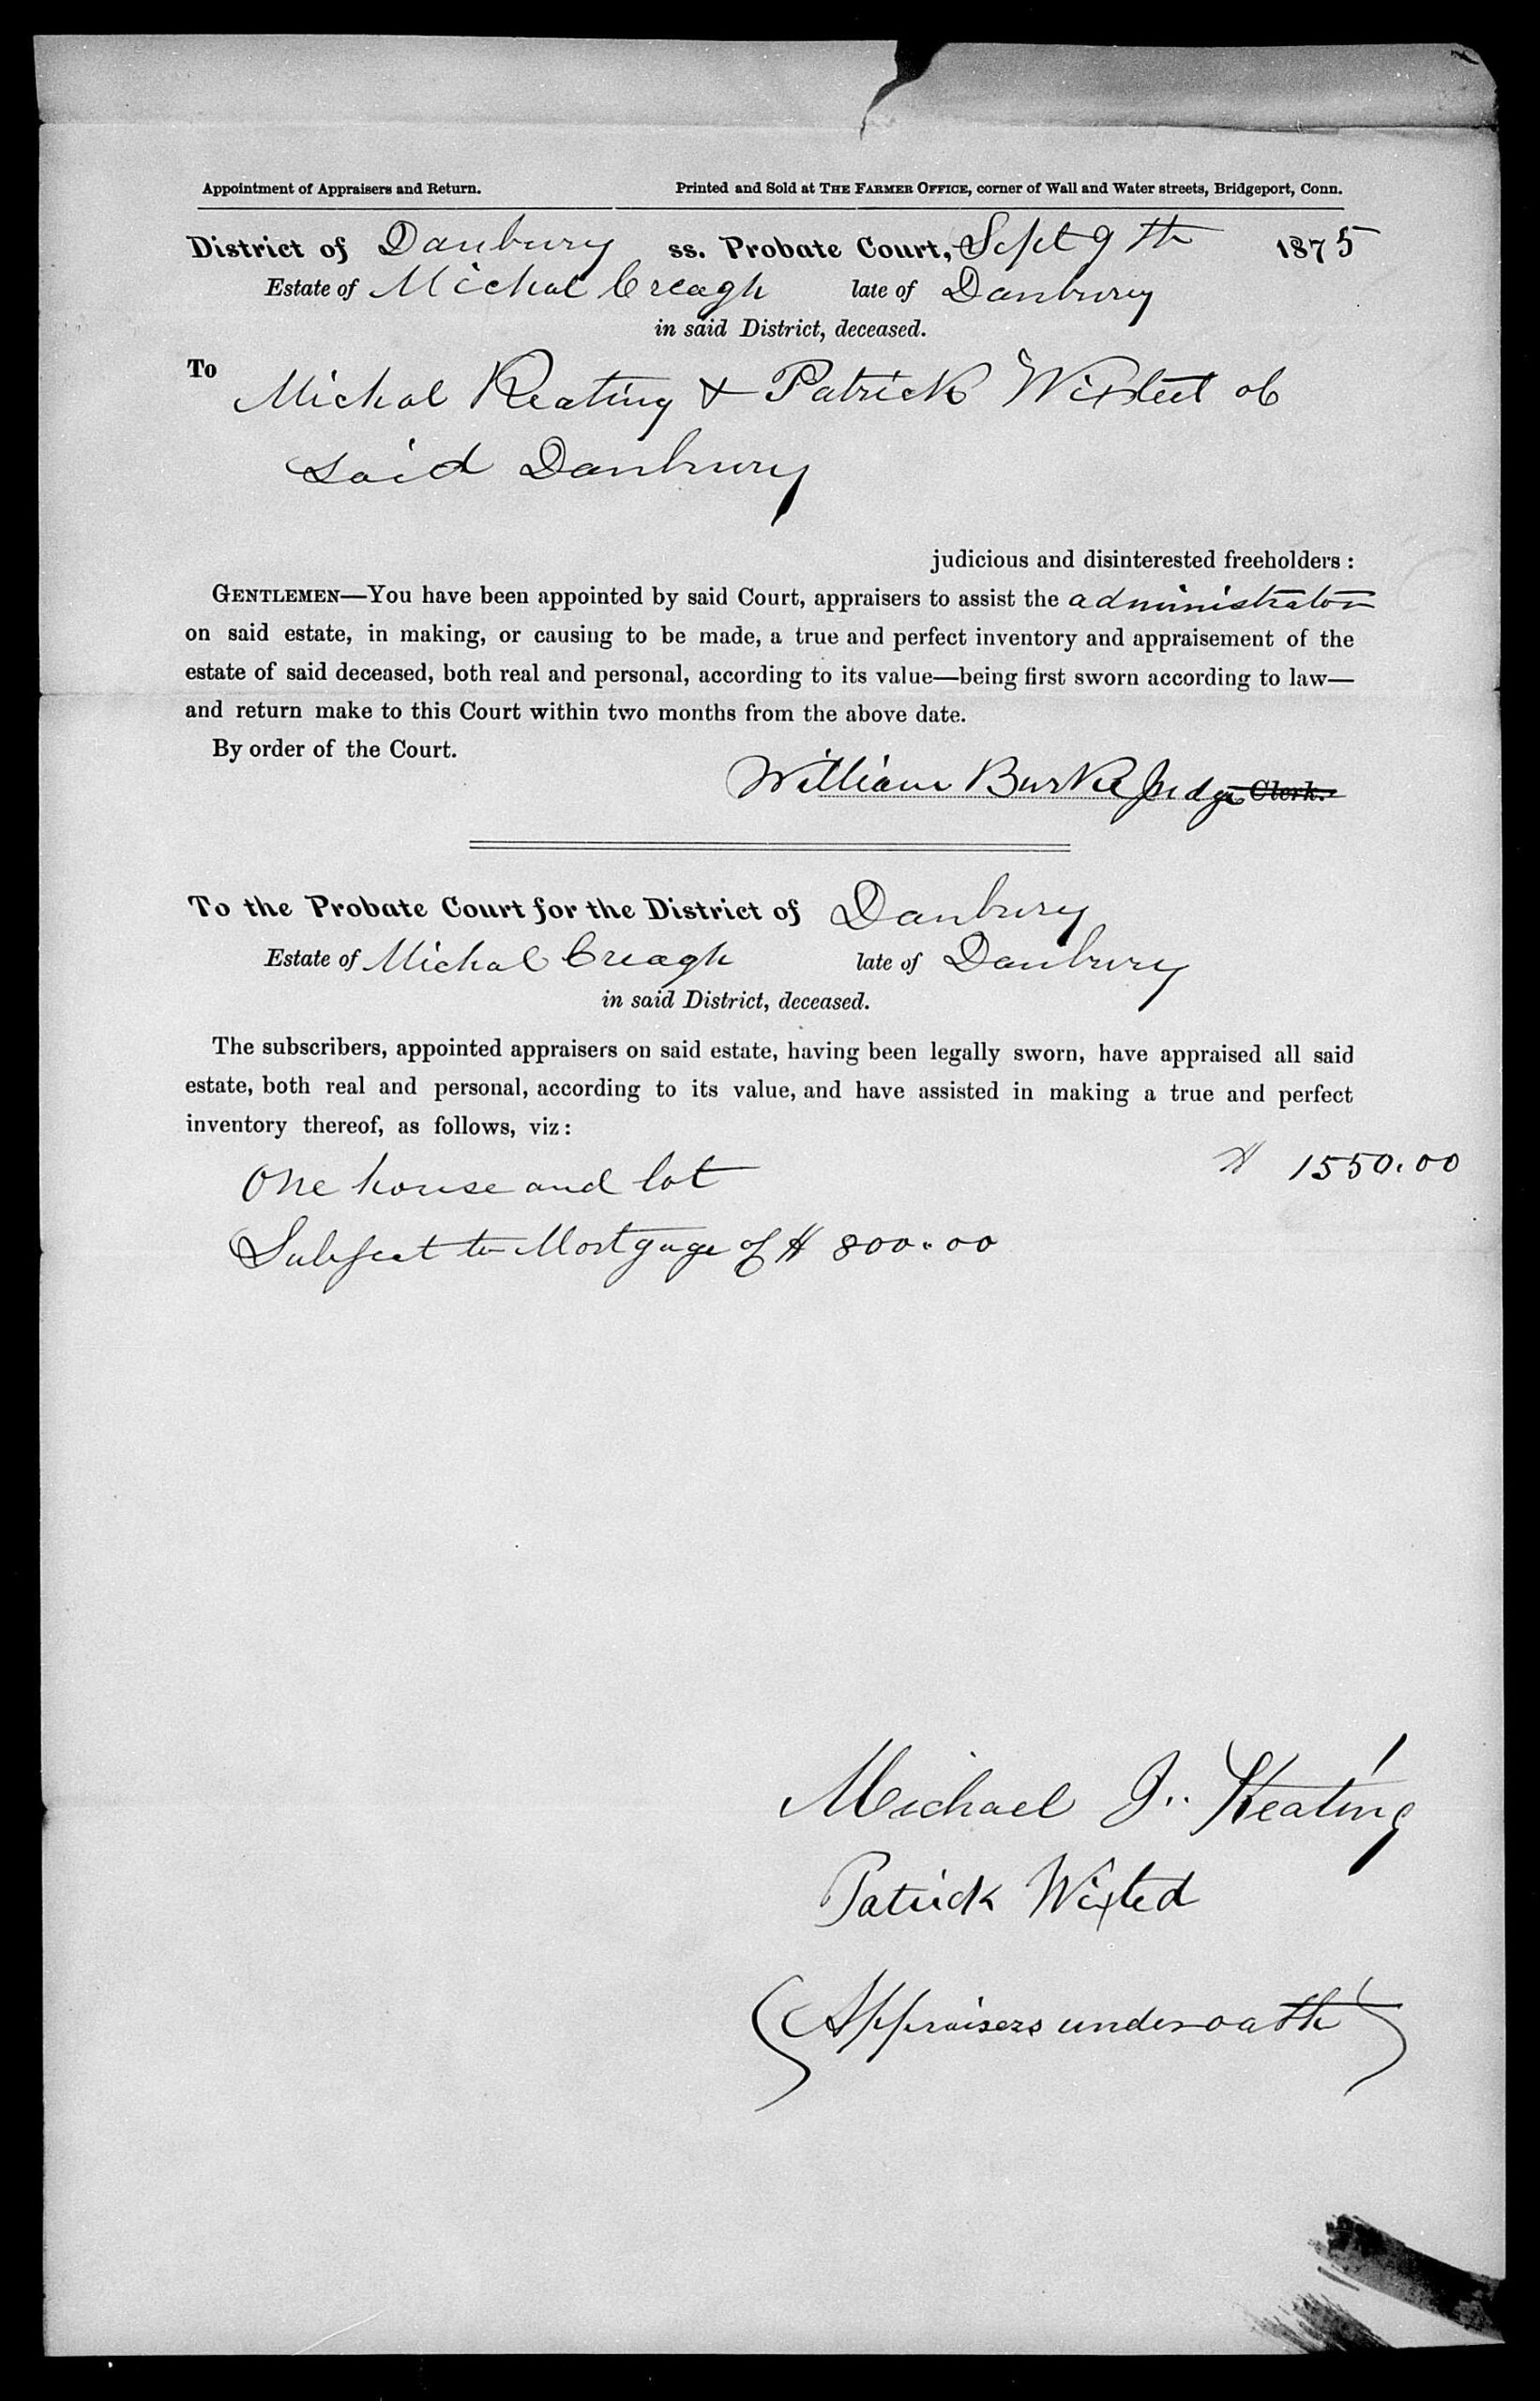 Appointment of Appraisers and Return. Printed and Sold at THE FARMER OFFICE, corner of Wall and Water streets, Bridgeport, Conn.
District of Danbury ss. Probate Court, Sept 9th 1875
Estate of Michal Creagh late of Danbury
in said District, deceased.
To
Michal Keating & Patrick Wixted of
said Danbury
judicious and disinterested freeholders :
GENTLEMEN—You have been appointed by said Court, appraisers to assist the administrator
on said estate, in making, or causing to be made, a true and perfect inventory and appraisement of the
estate of said deceased, both real and personal, according to its value—being first sworn according to law—
and return make to this Court within two months from the above date.
By order of the Court.
William Burke Judge Clerk.
To the Probate Court for the District of Danbury
Estate of Michal Creagh late of Danbury
in said District, deceased.
The subscribers, appointed appraisers on said estate, having been legally sworn, have appraised all said
estate, both real and personal, according to its value, and have assisted in making a true and perfect
inventory thereof, as follows, viz :
One house and lot $ 1550.00
Subject to Mortgage of $ 800.00
Michael J. Keating
Patrick Wixted
(Appraisers under oath)